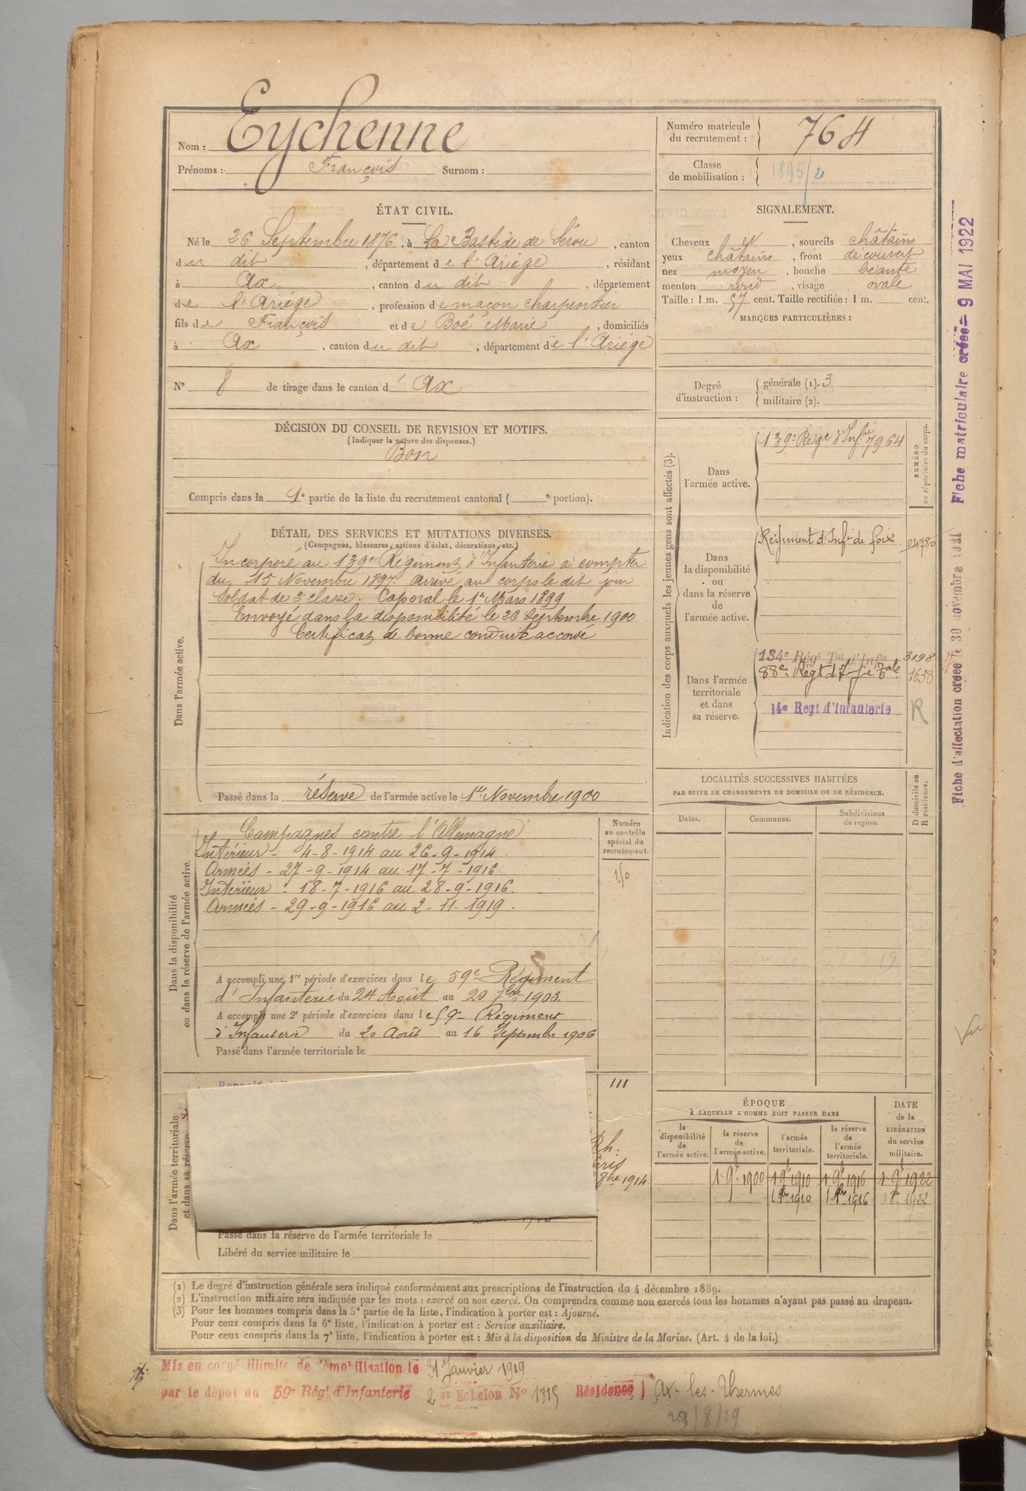 Nom : Eychenne
Prénoms : François Surnom :
Numéro matricule du recrutement : 764
Classe de mobilisation : 1895/2
ÉTAT CIVIL.
Né le 26 Septembre 1876, à La Bastide de Sérou, canton
du dit, département de l'Ariège, résidant
à Ax, canton du dit, département
de l'Ariège, profession de maçon charpentier
fils de François et de Boé Marie, domiciliés
à Ax, canton du dit, département de l'Ariège
N° 8 de tirage dans le canton d' Ax
SIGNALEMENT.
Cheveux et, sourcils châtains
yeux châtains, front découvert
nez moyen, bouche béante
menton rond, visage ovale
Taille : 1 m. 57 cent. Taille rectifiée : 1 m. cent.
MARQUES PARTICULIÈRES :
Degré d'instruction : générale (1). 3
militaire (2).
DÉCISION DU CONSEIL DE REVISION ET MOTIFS.
(Indiquer la nature des dispenses.)
Bon
Compris dans la 1e partie de la liste du recrutement cantonal ( e portion).
DÉTAIL DES SERVICES ET MUTATIONS DIVERSES.
(Campagnes, blessures, actions d'éclat, décorations, etc.)
Dans l'armée active.
Incorporé au 139e Régiment d'Infanterie à compter
du 15 Novembre 1897. Arrivé au corps le dit jour
Soldat de 2e classe. Caporal le 1er Mars 1899
Envoyé dans la disponibilité le 26 Septembre 1900
Certificat de bonne conduite accordé
Passé dans la réserve de l'armée active le 1er Novembre 1900
Indication des corps auxquels les jeunes gens sont affectés (3).
NUMÉRO au répertoire du corps.
Dans l'armée active.
139e Régt d'Infie 7964
Dans la disponibilité ou dans la réserve de l'armée active.
Régiment d'Infie de foix 04780
Dans l'armée territoriale et dans sa réserve.
134e Régt Tal d'Infie 3198
88e Régt d'Infie Tale 1638
14e Régt d'Infanterie R
LOCALITÉS SUCCESSIVES HABITÉES
PAR SUITE DE CHANGEMENTS DE DOMICILE OU DE RÉSIDENCE.
Dates. Communes. Subdivisions de région. D domicile ou R résidence.
Dans la disponibilité ou dans la réserve de l'armée active.
Numéro au contrôle spécial du recrutement.
Campagnes contre l'Allemagne
Intérieur - 4-8-1914 au 26-9-1914.
Armées - 27-9-1914 au 17-7-1916
Intérieur - 18-7-1916 au 28-9-1916.
Armées - 29-9-1916 au 2-11-1919.
A accompli une 1re période d'exercices dans le 59e Régiment
d'Infanterie du 24 Août au 20 7bre 1903.
A accompli une 2e période d'exercices dans le 59e Régiment
d'Infanterie du 20 Août au 16 Septembre 1906
Passé dans l'armée territoriale le
Dans l'armée territoriale et dans sa réserve
III
8bre 1914
Passé dans la réserve de l'armée territoriale le
Libéré du service militaire le
ÉPOQUE
À LAQUELLE L'HOMME DOIT PASSER DANS
la disponibilité de l'armée active. la réserve de l'armée active. l'armée territoriale. la réserve de l'armée territoriale. DATE de la LIBÉRATION du service militaire.
1 9bre 1900 1 9bre 1910 1 9bre 1916 1 9bre 1922
1 8bre 1910 1 8bre 1916 1 8bre 1922
(1) Le degré d'instruction générale sera indiqué conformément aux prescriptions de l'instruction du 4 décembre 1889.
(2) L'instruction militaire sera indiquée par les mots : exercé ou non exercé. On comprendra comme non exercés tous les hommes n'ayant pas passé au drapeau.
(3) Pour les hommes compris dans la 5e partie de la liste, l'indication à porter est : Ajourné.
Pour ceux compris dans la 6e liste, l'indication à porter est : Service auxiliaire.
Pour ceux compris dans la 7e liste, l'indication à porter est : Mis à la disposition du Ministre de la Marine. (Art. 4 de la loi.)
Mis en congé illimité de démobilisation le 31 Janvier 1919
par le dépôt du 59e Régt d'Infanterie 2e Echelon N° 1815 Résidence Ax-les-Thermes
29/8/19
Fiche d'affectation créée le 30 novembre 1921 Fiche matriculaire créée 9 MAI 1922